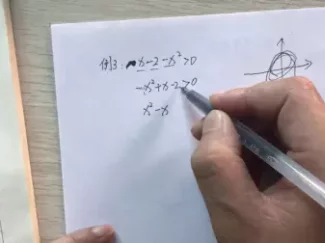 例3: x-2-x²>0
-x²+x-2>0
x²-x